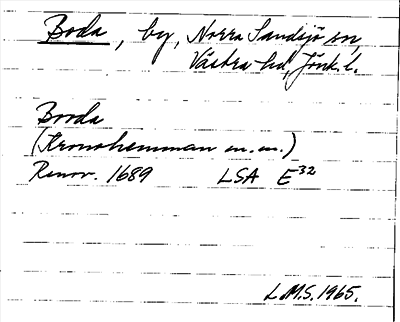 Boda, by, Norra Sandsjö sn,
Västra hd, Jönk. l.
Booda
(Kronohemman m.m.)
Renov. 1689 LSA E32
L.M.S. 1965.